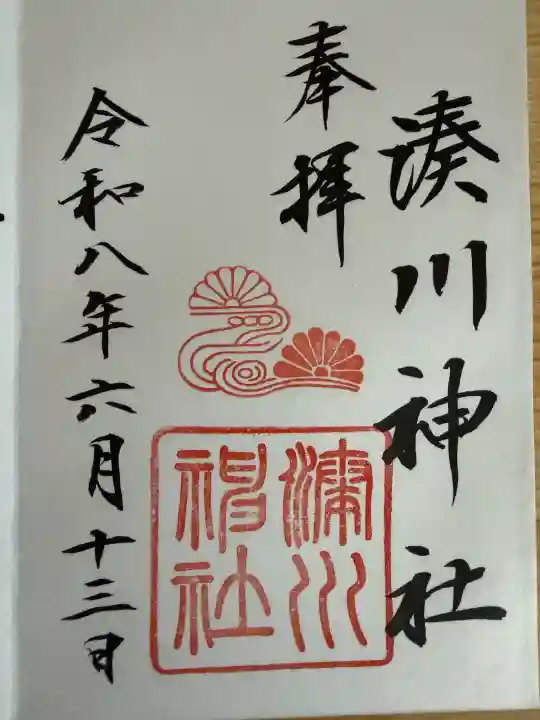 湊川神社
奉拝
湊川神社
令和八年六月十三日